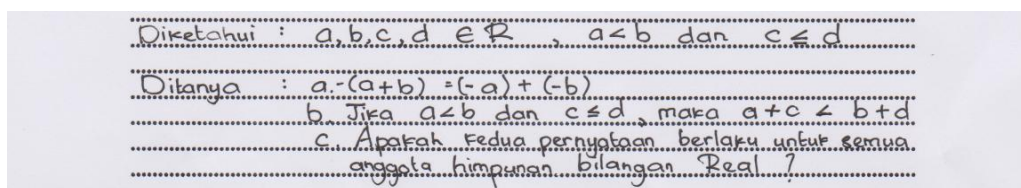 Diketahui : a, b, c, d ∈ R , a < b dan c ≤ d
Ditanya : a. -(a+b) = (-a) + (-b)
b. Jika a < b dan c ≤ d, maka a + c < b + d
c. Apakah kedua pernyataan berlaku untuk semua
anggota himpunan bilangan Real ?